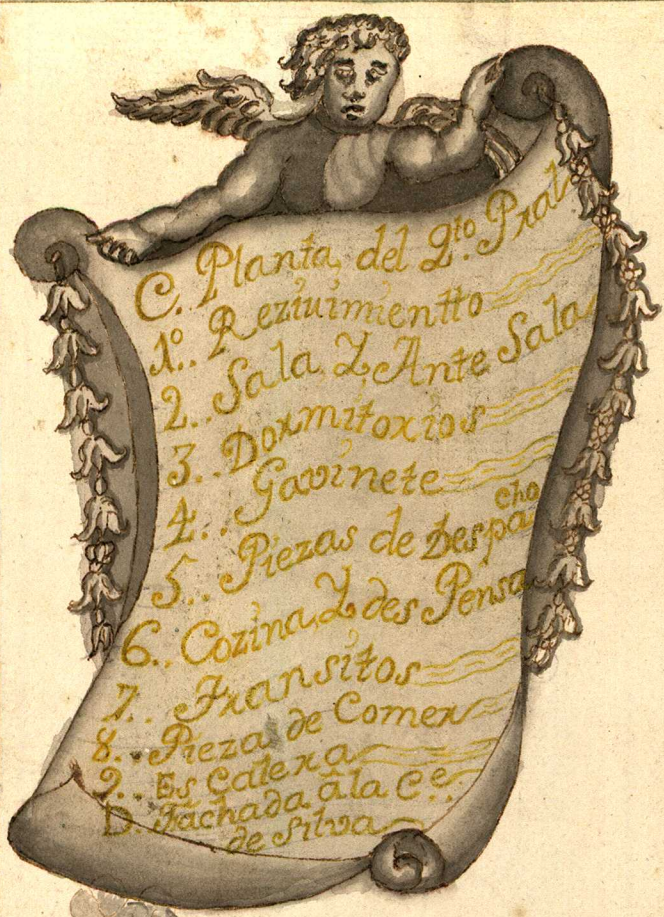 C. Planta, del 2.to Pral
1º.. Reziuimientto
2.. Sala, Y, Ante Sala
3.. Dormitorios
4.. Gavinete
5.. Piezas de Despacho
6.. Cozina, Y des Pensa
7.. Transitos
8.. Pieza de Comer
9.. Es Calera
D. Fachada âla C.e
de Silva